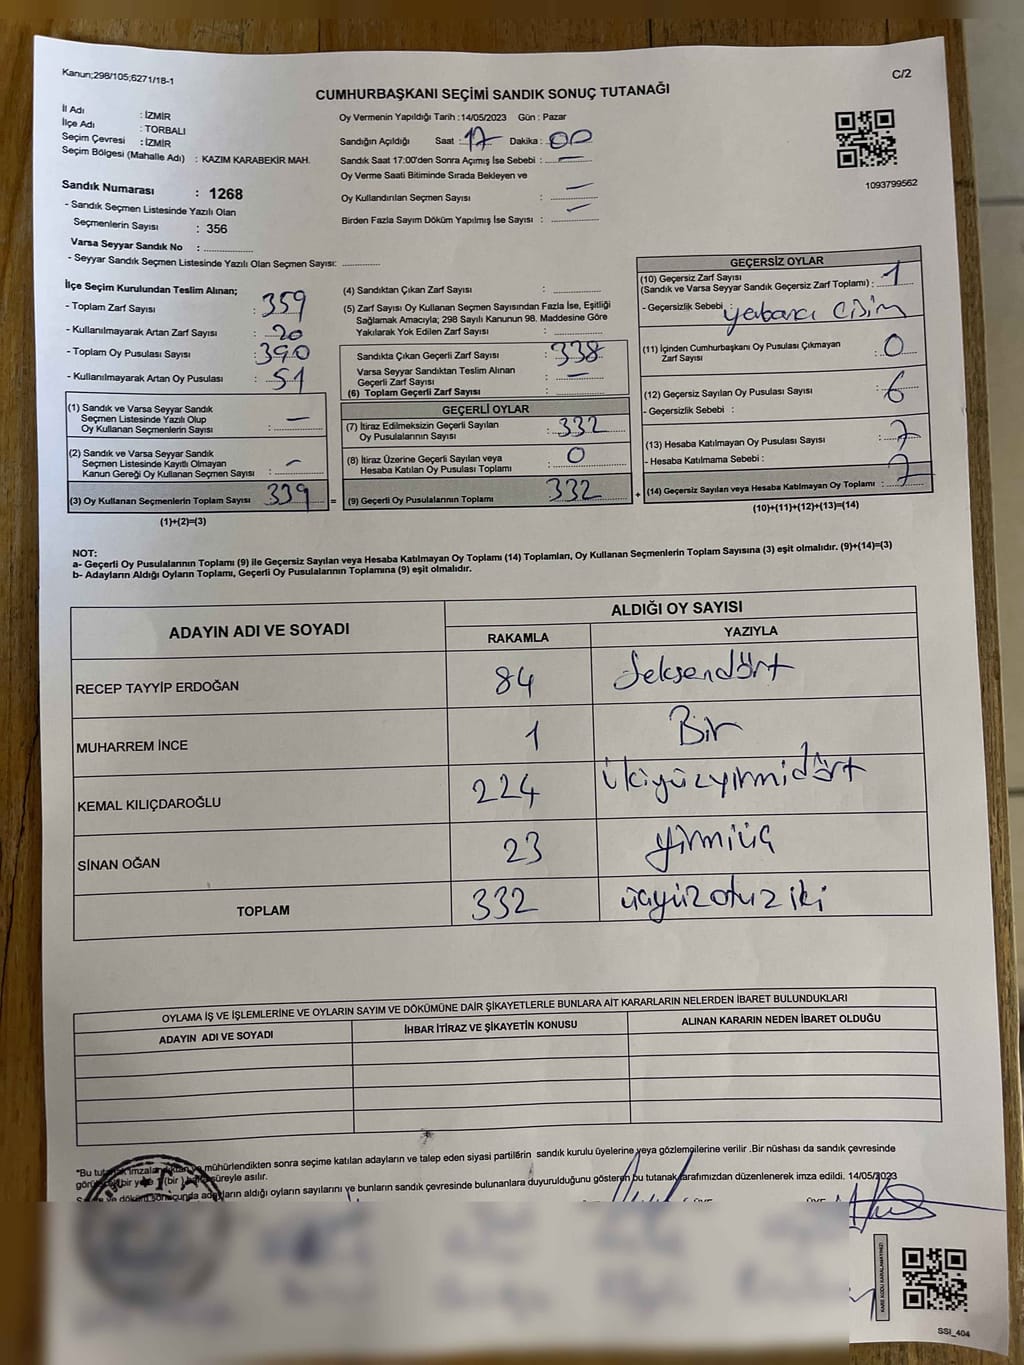 Kanun;298/105;6271/18-1
C/2
CUMHURBAŞKANI SEÇİMİ SANDIK SONUÇ TUTANAĞI
İl Adı : İZMİR
İlçe Adı : TORBALI
Seçim Çevresi : İZMİR
Seçim Bölgesi (Mahalle Adı) : KAZIM KARABEKİR MAH.
Sandık Numarası : 1268
- Sandık Seçmen Listesinde Yazılı Olan
Seçmenlerin Sayısı : 356
Varsa Seyyar Sandık No :
- Seyyar Sandık Seçmen Listesinde Yazılı Olan Seçmen Sayısı:
Oy Vermenin Yapıldığı Tarih :14/05/2023 Gün : Pazar
Sandığın Açıldığı Saat : 17 Dakika : 00
Sandık Saat 17:00'den Sonra Açımış İse Sebebi : —
Oy Verme Saati Bitiminde Sırada Bekleyen ve
Oy Kullandırılan Seçmen Sayısı : —
Birden Fazla Sayım Döküm Yapılmış İse Sayısı : —
1093799562
İlçe Seçim Kurulundan Teslim Alınan;
- Toplam Zarf Sayısı : 359
- Kullanılmayarak Artan Zarf Sayısı : 20
- Toplam Oy Pusulası Sayısı : 390
- Kullanılmayarak Artan Oy Pusulası : 51
(1) Sandık ve Varsa Seyyar Sandık
Seçmen Listesinde Yazılı Olup
Oy Kullanan Seçmenlerin Sayısı : —
(2) Sandık ve Varsa Seyyar Sandık
Seçmen Listesinde Kayıtlı Olmayan
Kanun Gereği Oy Kullanan Seçmen Sayısı : —
(3) Oy Kullanan Seçmenlerin Toplam Sayısı : 339 =
(1)+(2)=(3)
(4) Sandıktan Çıkan Zarf Sayısı :
(5) Zarf Sayısı Oy Kullanan Seçmen Sayısından Fazla İse, Eşitliği
Sağlamak Amacıyla; 298 Sayılı Kanunun 98. Maddesine Göre
Yakılarak Yok Edilen Zarf Sayısı :
Sandıkta Çıkan Geçerli Zarf Sayısı : 338
Varsa Seyyar Sandıktan Teslim Alınan
Geçerli Zarf Sayısı : —
(6) Toplam Geçerli Zarf Sayısı :
GEÇERLİ OYLAR
(7) İtiraz Edilmeksizin Geçerli Sayılan
Oy Pusulalarının Sayısı : 332
(8) İtiraz Üzerine Geçerli Sayılan veya
Hesaba Katılan Oy Pusulası Toplamı : 0
(9) Geçerli Oy Pusulalarının Toplamı : 332 +
GEÇERSİZ OYLAR
(10) Geçersiz Zarf Sayısı
(Sandık ve Varsa Seyyar Sandık Geçersiz Zarf Toplamı) : 1
- Geçersizlik Sebebi : yabancı Cisim
(11) İçinden Cumhurbaşkanı Oy Pusulası Çıkmayan
Zarf Sayısı : 0
(12) Geçersiz Sayılan Oy Pusulası Sayısı : 6
- Geçersizlik Sebebi :
(13) Hesaba Katılmayan Oy Pusulası Sayısı : 7
- Hesaba Katılmama Sebebi :
(14) Geçersiz Sayılan veya Hesaba Katılmayan Oy Toplamı : 7
(10)+(11)+(12)+(13)=(14)
NOT:
a- Geçerli Oy Pusulalarının Toplamı (9) ile Geçersiz Sayılan veya Hesaba Katılmayan Oy Toplamı (14) Toplamları, Oy Kullanan Seçmenlerin Toplam Sayısına (3) eşit olmalıdır. (9)+(14)=(3)
b- Adayların Aldığı Oyların Toplamı, Geçerli Oy Pusulalarının Toplamına (9) eşit olmalıdır.
ADAYIN ADI VE SOYADI
ALDIĞI OY SAYISI
RAKAMLA YAZIYLA
RECEP TAYYİP ERDOĞAN 84 Seksendört
MUHARREM İNCE 1 Bir
KEMAL KILIÇDAROĞLU 224 ikiyüzyirmidört
SİNAN OĞAN 23 yirmiüç
TOPLAM 332 üçyüzotuziki
OYLAMA İŞ VE İŞLEMLERİNE VE OYLARIN SAYIM VE DÖKÜMÜNE DAİR ŞİKAYETLERLE BUNLARA AİT KARARLARIN NELERDEN İBARET BULUNDUKLARI
ADAYIN ADI VE SOYADI İHBAR İTİRAZ VE ŞİKAYETİN KONUSU ALINAN KARARIN NEDEN İBARET OLDUĞU
*Bu mühürlendikten sonra seçime katılan adayların ve talep eden siyasi partilerin sandık kurulu üyelerine veya gözlemcilerine verilir .Bir nüshası da sandık çevresinde
bir (bir) süreyle asılır.
sonucunda adayların aldığı oyların sayılarını ve bunların sandık çevresinde bulunanlara duyurulduğunu gösteren bu tutanak tarafımızdan düzenlenerek imza edildi. 14/05/2023
KARE KODU KARALAMAYINIZ!
SSI_404